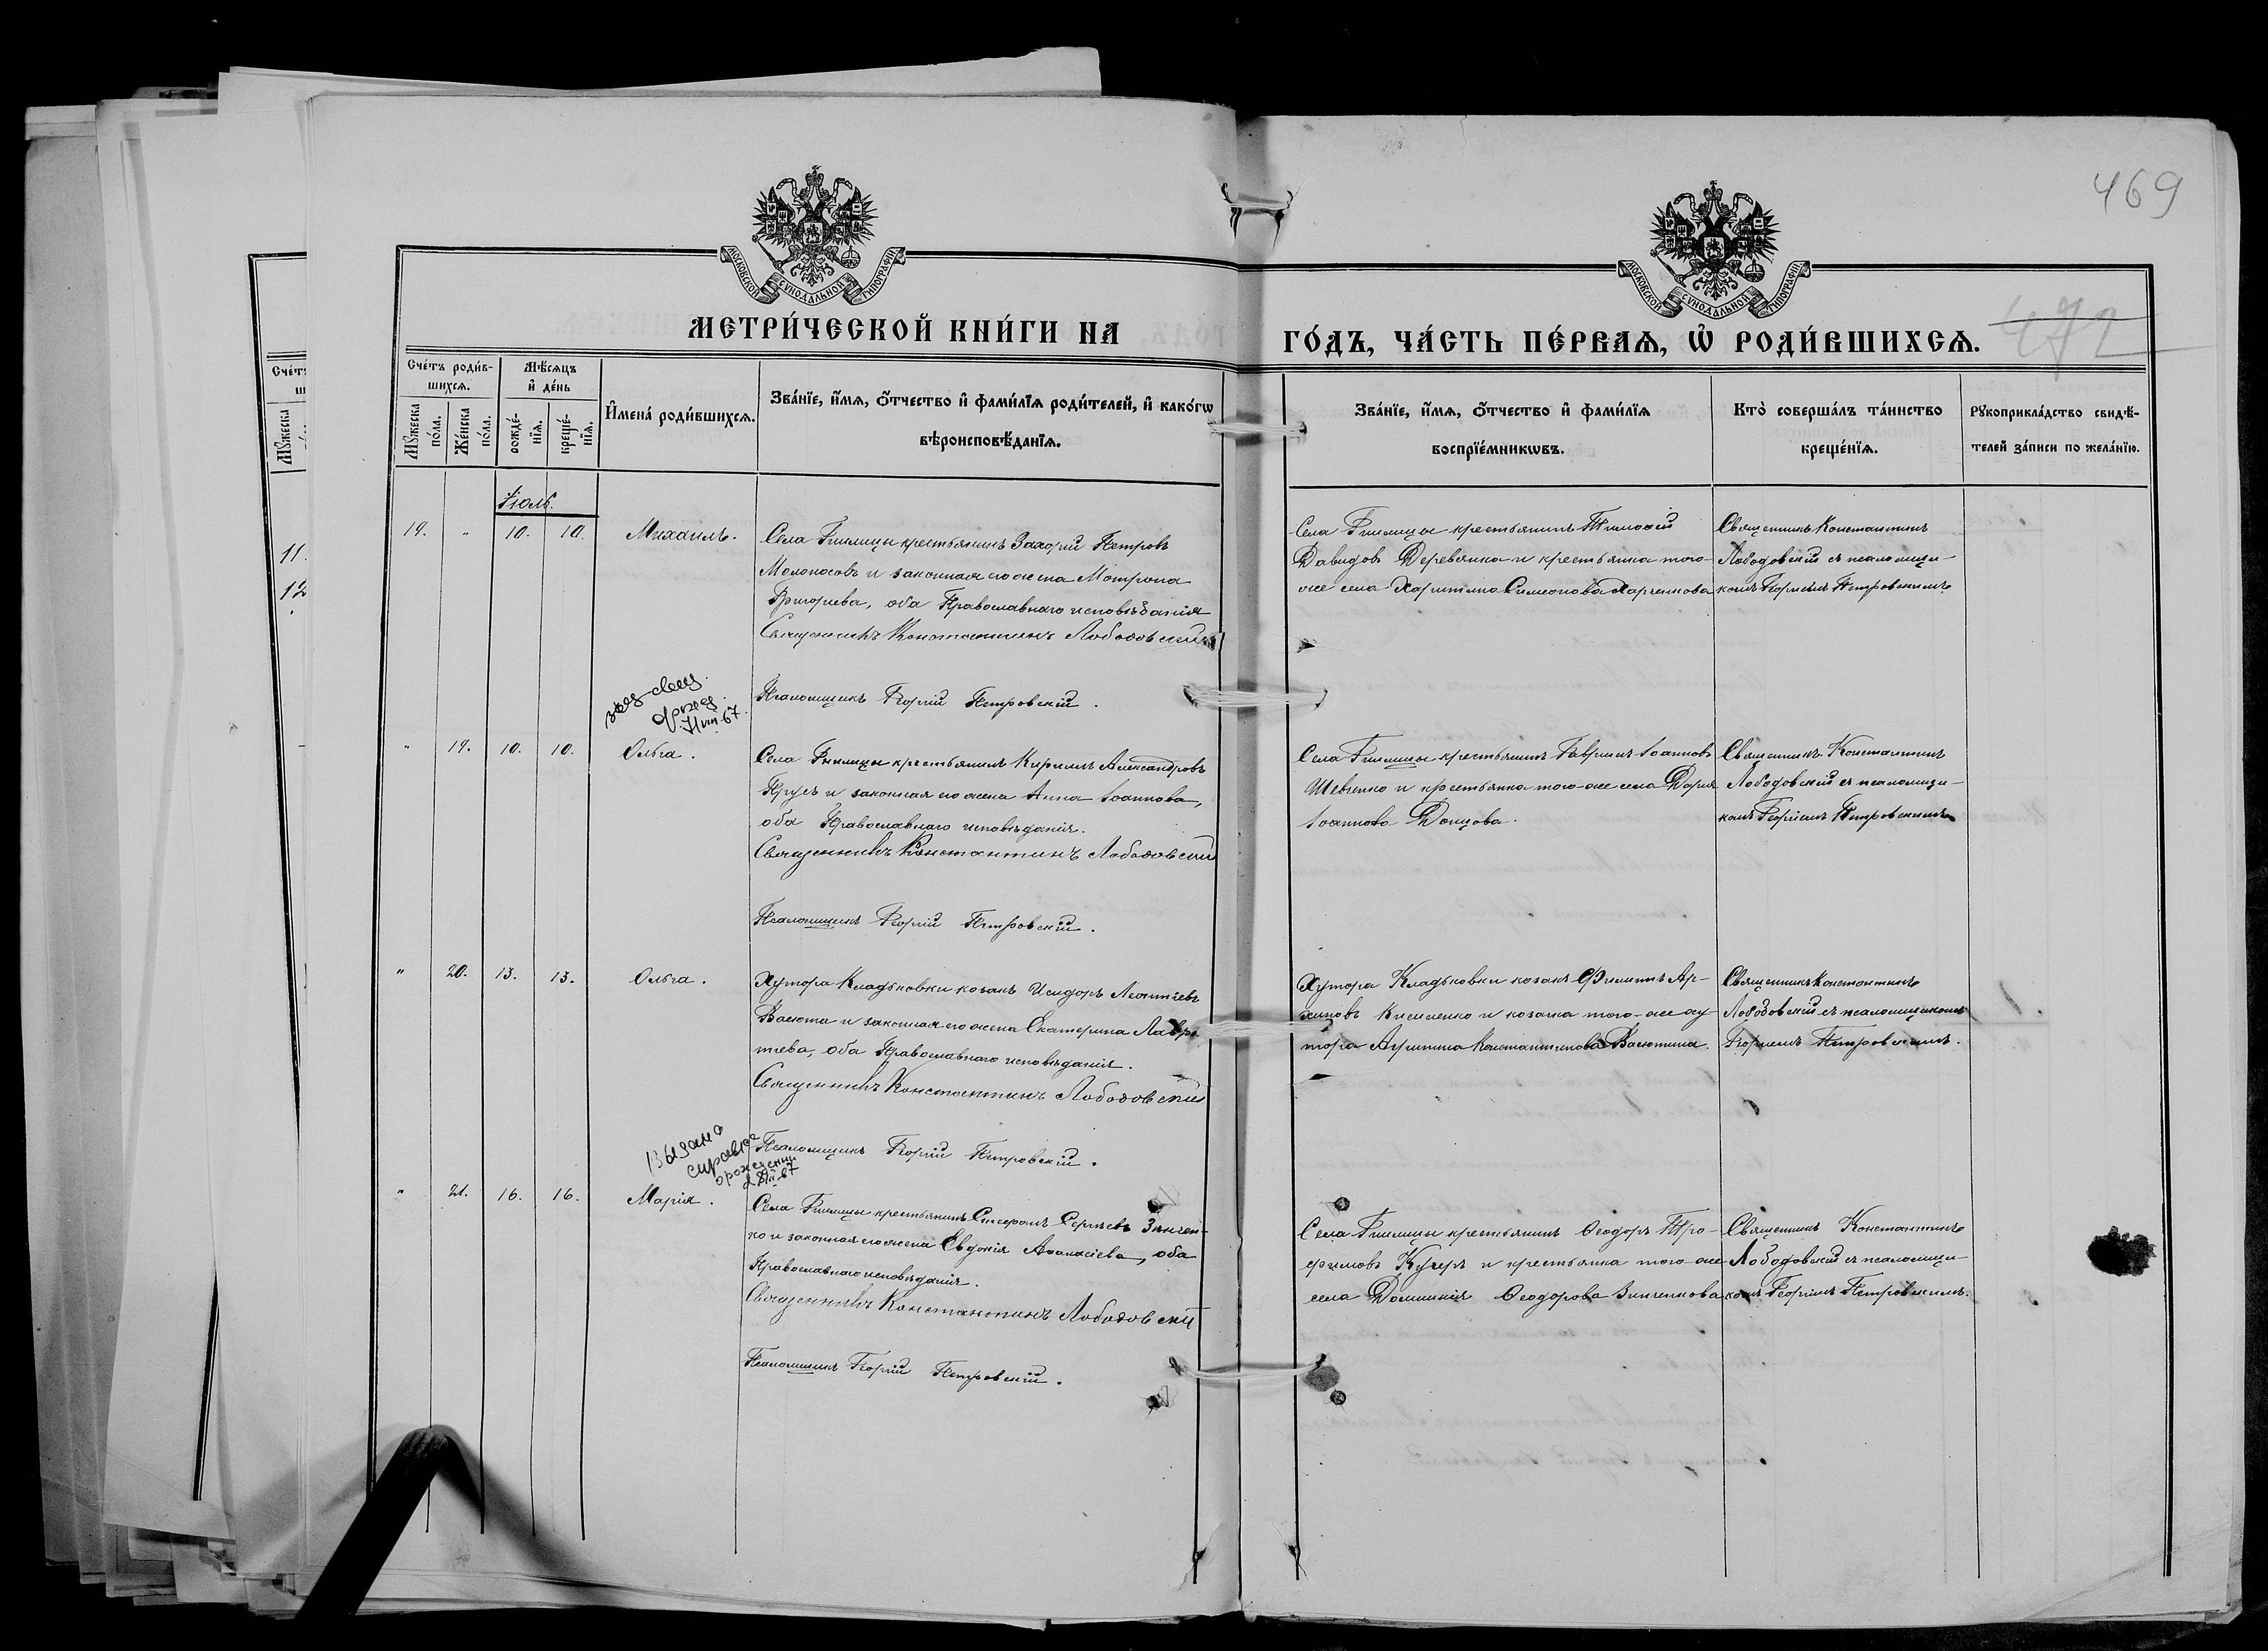 469
472
МОСКОВСКОЙ СѴНОДАЛЬНОЙ ТИПОГРАФІИ
МОСКОВСКОЙ СѴНОДАЛЬНОЙ ТИПОГРАФІИ
МЕТРИ́ЧЕСКОЙ КНИ́ГИ НА
ГО́ДЪ, ЧА́СТЬ ПЕ́РВАѦ, Ѡ҆ РОДИ́ВШИХСѦ.
Сче́тъ роди́в-
шихсѧ.
Мꙋ́жеска по́ла.
Же́нска по́ла.
Мѣ́сѧцъ
и҆ де́нь
рожде́-
нїѧ.
креще́-
нїѧ.
И҆мена̀ роди́вшихсѧ.
Зва́нїе, и҆́мѧ, ѻ҆́тчество и҆ фами́лїѧ роди́телей, и҆ како́гѡ
вѣроисповѣ́данїѧ.
Зва́нїе, и҆́мѧ, ѻ҆́тчество и҆ фами́лїѧ
воспрїе́мникѡвъ.
Кто̀ соверша́лъ та́инство
креще́нїѧ.
Рꙋкоприкла́дство свидѣ́-
телей за́писи по жела́нїю.
11.
12
Іюль.
19. " 10. 10. Михаилъ.
Села Гнилицы крестьянинъ Захорій Петровъ
Молоносовъ и законная его жена Мотрона
Григорьева, оба Православнаго исповѣданія
Священникъ Константинъ Лободовскій
Псаломщикъ Георгій Петровскій.
Села Гнилицы крестьянинъ Тимоѳей
Давидовъ Деревянка и крестьянка того-
же села Харитина Симеонова Харченкова
Священникъ Константинъ
Лободовскій съ псаломщи-
комъ Георгіемъ Петровскимъ
67
" 19. 10. 10. Ольга.
Села Гнилицы крестьянинъ Кириллъ Александровъ
Прусъ и законная его жена Анна Іоаннова,
оба Православнаго исповѣданія.
Священникъ Константинъ Лободовскій
Псаломщикъ Георгій Петровскій.
Села Гнилицы крестьянинъ Гавріилъ Іоанновъ
Шевченко и крестьянка того-же села Дарія
Іоаннова Донцова.
Священникъ Константинъ
Лободовскій съ псаломщи-
комъ Георгіемъ Петровскимъ
" 20. 13. 13. Ольга.
Хутора Кладьковки козакъ Исидоръ Леонтіевъ
Васюта и законная его жена Екатерина Лаврен-
тіева, оба Православнаго исповѣданія.
Священникъ Константинъ Лободовскій
Псаломщикъ Георгій Петровскій.
Хутора Кладьковки козакъ Филиппъ Ар-
хиповъ Киселенко и козачка того-же ху-
тора Агриппина Константинова Васютина.
Священникъ Константинъ
Лободовскій съ псаломщикомъ
Георгіемъ Петровскимъ.
Выдана
справка
о рождении
67
" 21. 16. 16. Марія.
Села Гнилицы крестьянинъ Стефанъ Сергіевъ Зинчен-
ко и законная его жена Евдокія Аѳанасіева, оба
Православнаго исповѣданія.
Священникъ Константинъ Лободовскій
Псаломщикъ Георгій Петровскій.
Села Гнилицы крестьянинъ Ѳеодоръ Тро-
фимовъ Кучеръ и крестьянка того-же
села Домникія Ѳеодорова Зинченкова
Священникъ Константинъ
Лободовскій съ псаломщи-
комъ Георгіемъ Петровскимъ.